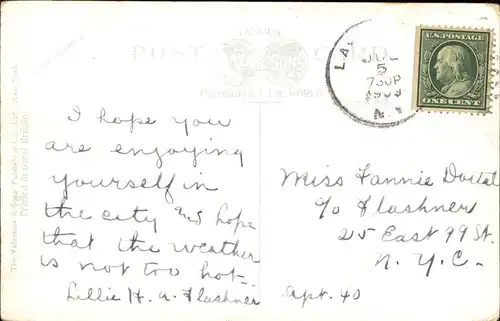 POST CARD
FAMOUS
THROUGHOUT THE WORLD
LA
JUL
5
730P
1909
N.Y.
U.S. POSTAGE
ONE CENT
The Valentine & Sons Publishing Co., Ltd., New York.
Printed in Great Britain.
I hope you
are enjoying
yourself in
the city and hope
that the weather
is not too hot-
Lillie H. A. Flashner
Miss Fannie Dostal
c/o Flashner
25 East 99 St.
N.Y.C.-
Apt. 40